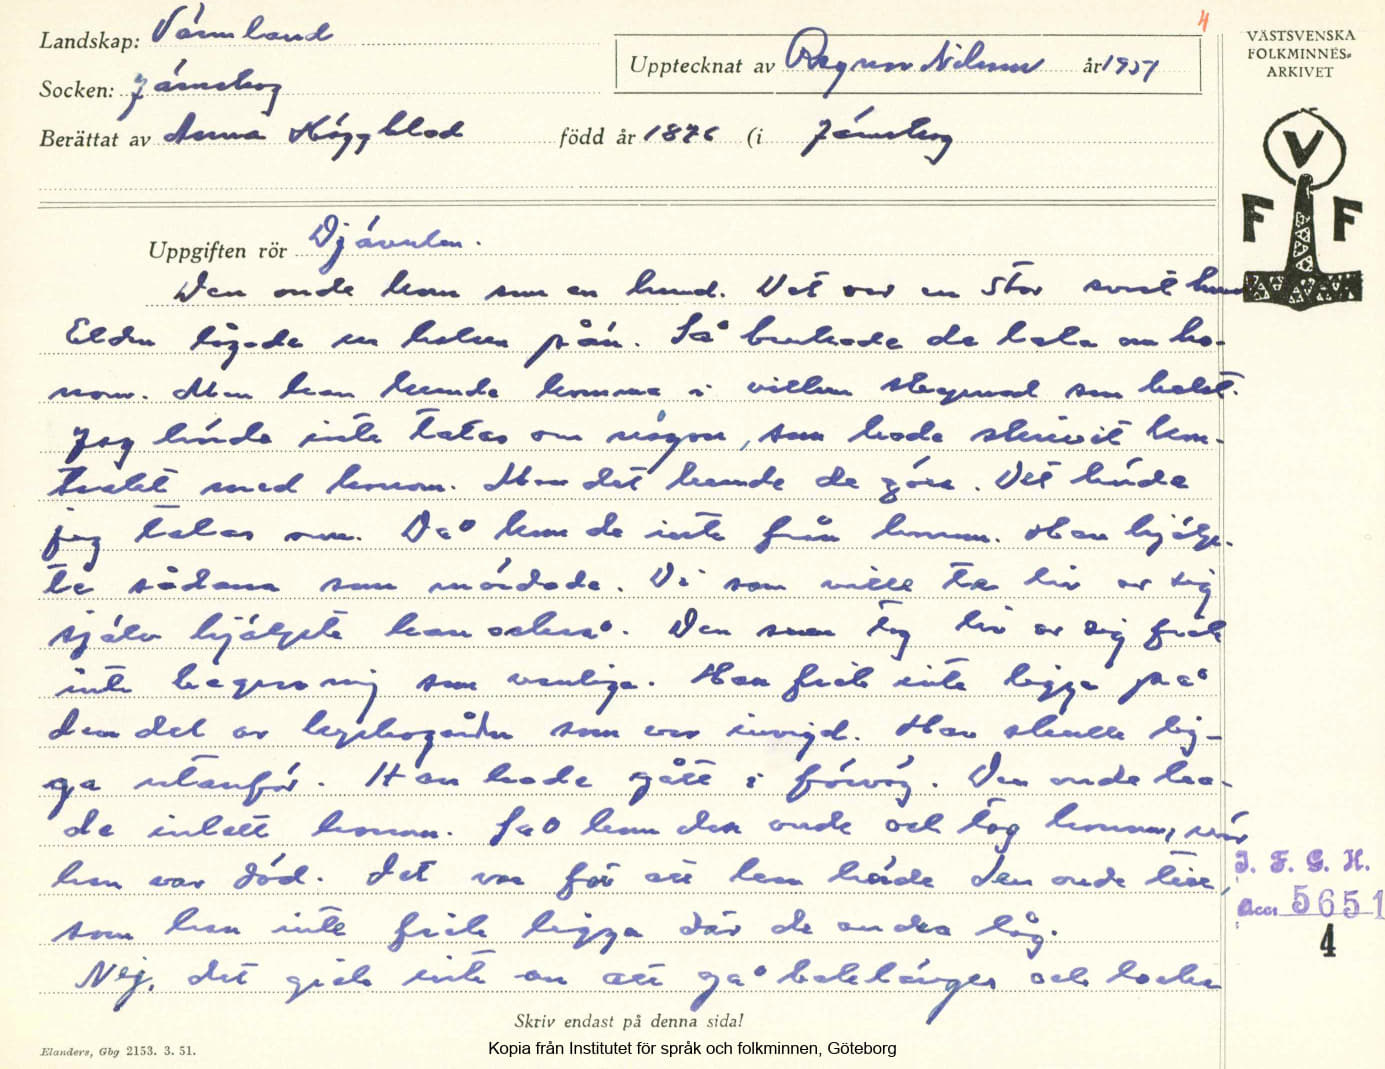 4
Landskap: Värmland
Upptecknat av Ragnar Nilsson år 1951
VÄSTSVENSKA
FOLKMINNES-
ARKIVET
Socken: Järnskog
Berättat av Anna Häggblad född år 1876 (i Järnskog
V
F F
Uppgiften rör Djävulen.
Den onde kom som en hund. Det var en stor svart hund
Elden lågade ur halsen på'n. Så brukade de tala om ho-
nom. Men han kunde komma i vilken skepnad som helst.
Jag hörde inte talas om någon, som hade skrivit kon-
trakt med honom. Men det kunde de göra. Det hörde
jag talas om. Då kom de inte från honom. Han hjälp-
te sådana som mördade. De som ville ta liv av sig
själv hjälpte han också. Den som tog liv av sig fick
inte begravning som vanliga. Han fick inte ligga på
den del av kyrkogården som var invigd. Han skulle lig-
ga utanför. Han hade gått i förväg. Den onde ha-
de intatt honom. Så kom den onde och tog honom, när
han var död. Det var för att han hörde den onde till,
som han inte fick ligga där de andra låg.
Nej, det gick inte an att gå baklänges och
I. F. G. H.
Acc: 5651
4
Skriv endast på denna sida!
Elanders, Gbg 2153. 3. 51.
Kopia från Institutet för språk och folkminnen, Göteborg